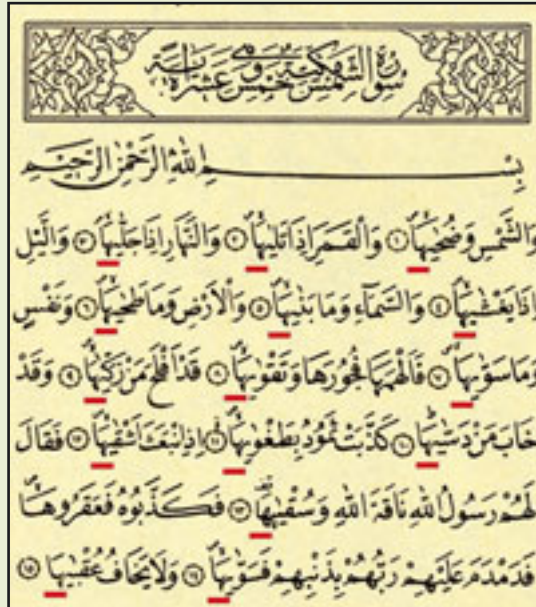 سورة الشمس مكية وهي خمس عشرة اية
بِسْمِ اللّٰهِ الرَّحْمٰنِ الرَّحٖيمِ
وَالشَّمْسِ وَضُحٰيهَاۙ ﴿١﴾ وَالْقَمَرِ اِذَا تَلٰيهَاۙ ﴿٢﴾ وَالنَّهَارِ اِذَا جَلّٰيهَاۙ ﴿٣﴾ وَالَّيْلِ
اِذَا يَغْشٰيهَاۙ ﴿٤﴾ وَالسَّمَٓاءِ وَمَا بَنٰيهَاۙ ﴿٥﴾ وَالْاَرْضِ وَمَا طَحٰيهَاۙ ﴿٦﴾ وَنَفْسٍ
وَمَا سَوّٰيهَاۙ ﴿٧﴾ فَاَلْهَمَهَا فُجُورَهَا وَتَقْوٰيهَاۙ ﴿٨﴾ قَدْ اَفْلَحَ مَنْ زَكّٰيهَاۙ ﴿٩﴾ وَقَدْ
خَابَ مَنْ دَسّٰيهَاۜ ﴿١٠﴾ كَذَّبَتْ ثَمُودُ بِطَغْوٰيهَاۙ ﴿١١﴾ اِذِ انْبَعَثَ اَشْقٰيهَاۙ ﴿١٢﴾ فَقَالَ
لَهُمْ رَسُولُ اللّٰهِ نَاقَةَ اللّٰهِ وَسُقْيٰيهَاۜ ﴿١٣﴾ فَكَذَّبُوهُ فَعَقَرُوهَاۙ
فَدَمْدَمَ عَلَيْهِمْ رَبُّهُمْ بِذَنْبِهِمْ فَسَوّٰيهَاۙ ﴿١٤﴾ وَلَا يَخَافُ عُقْبٰيهَا ﴿١٥﴾